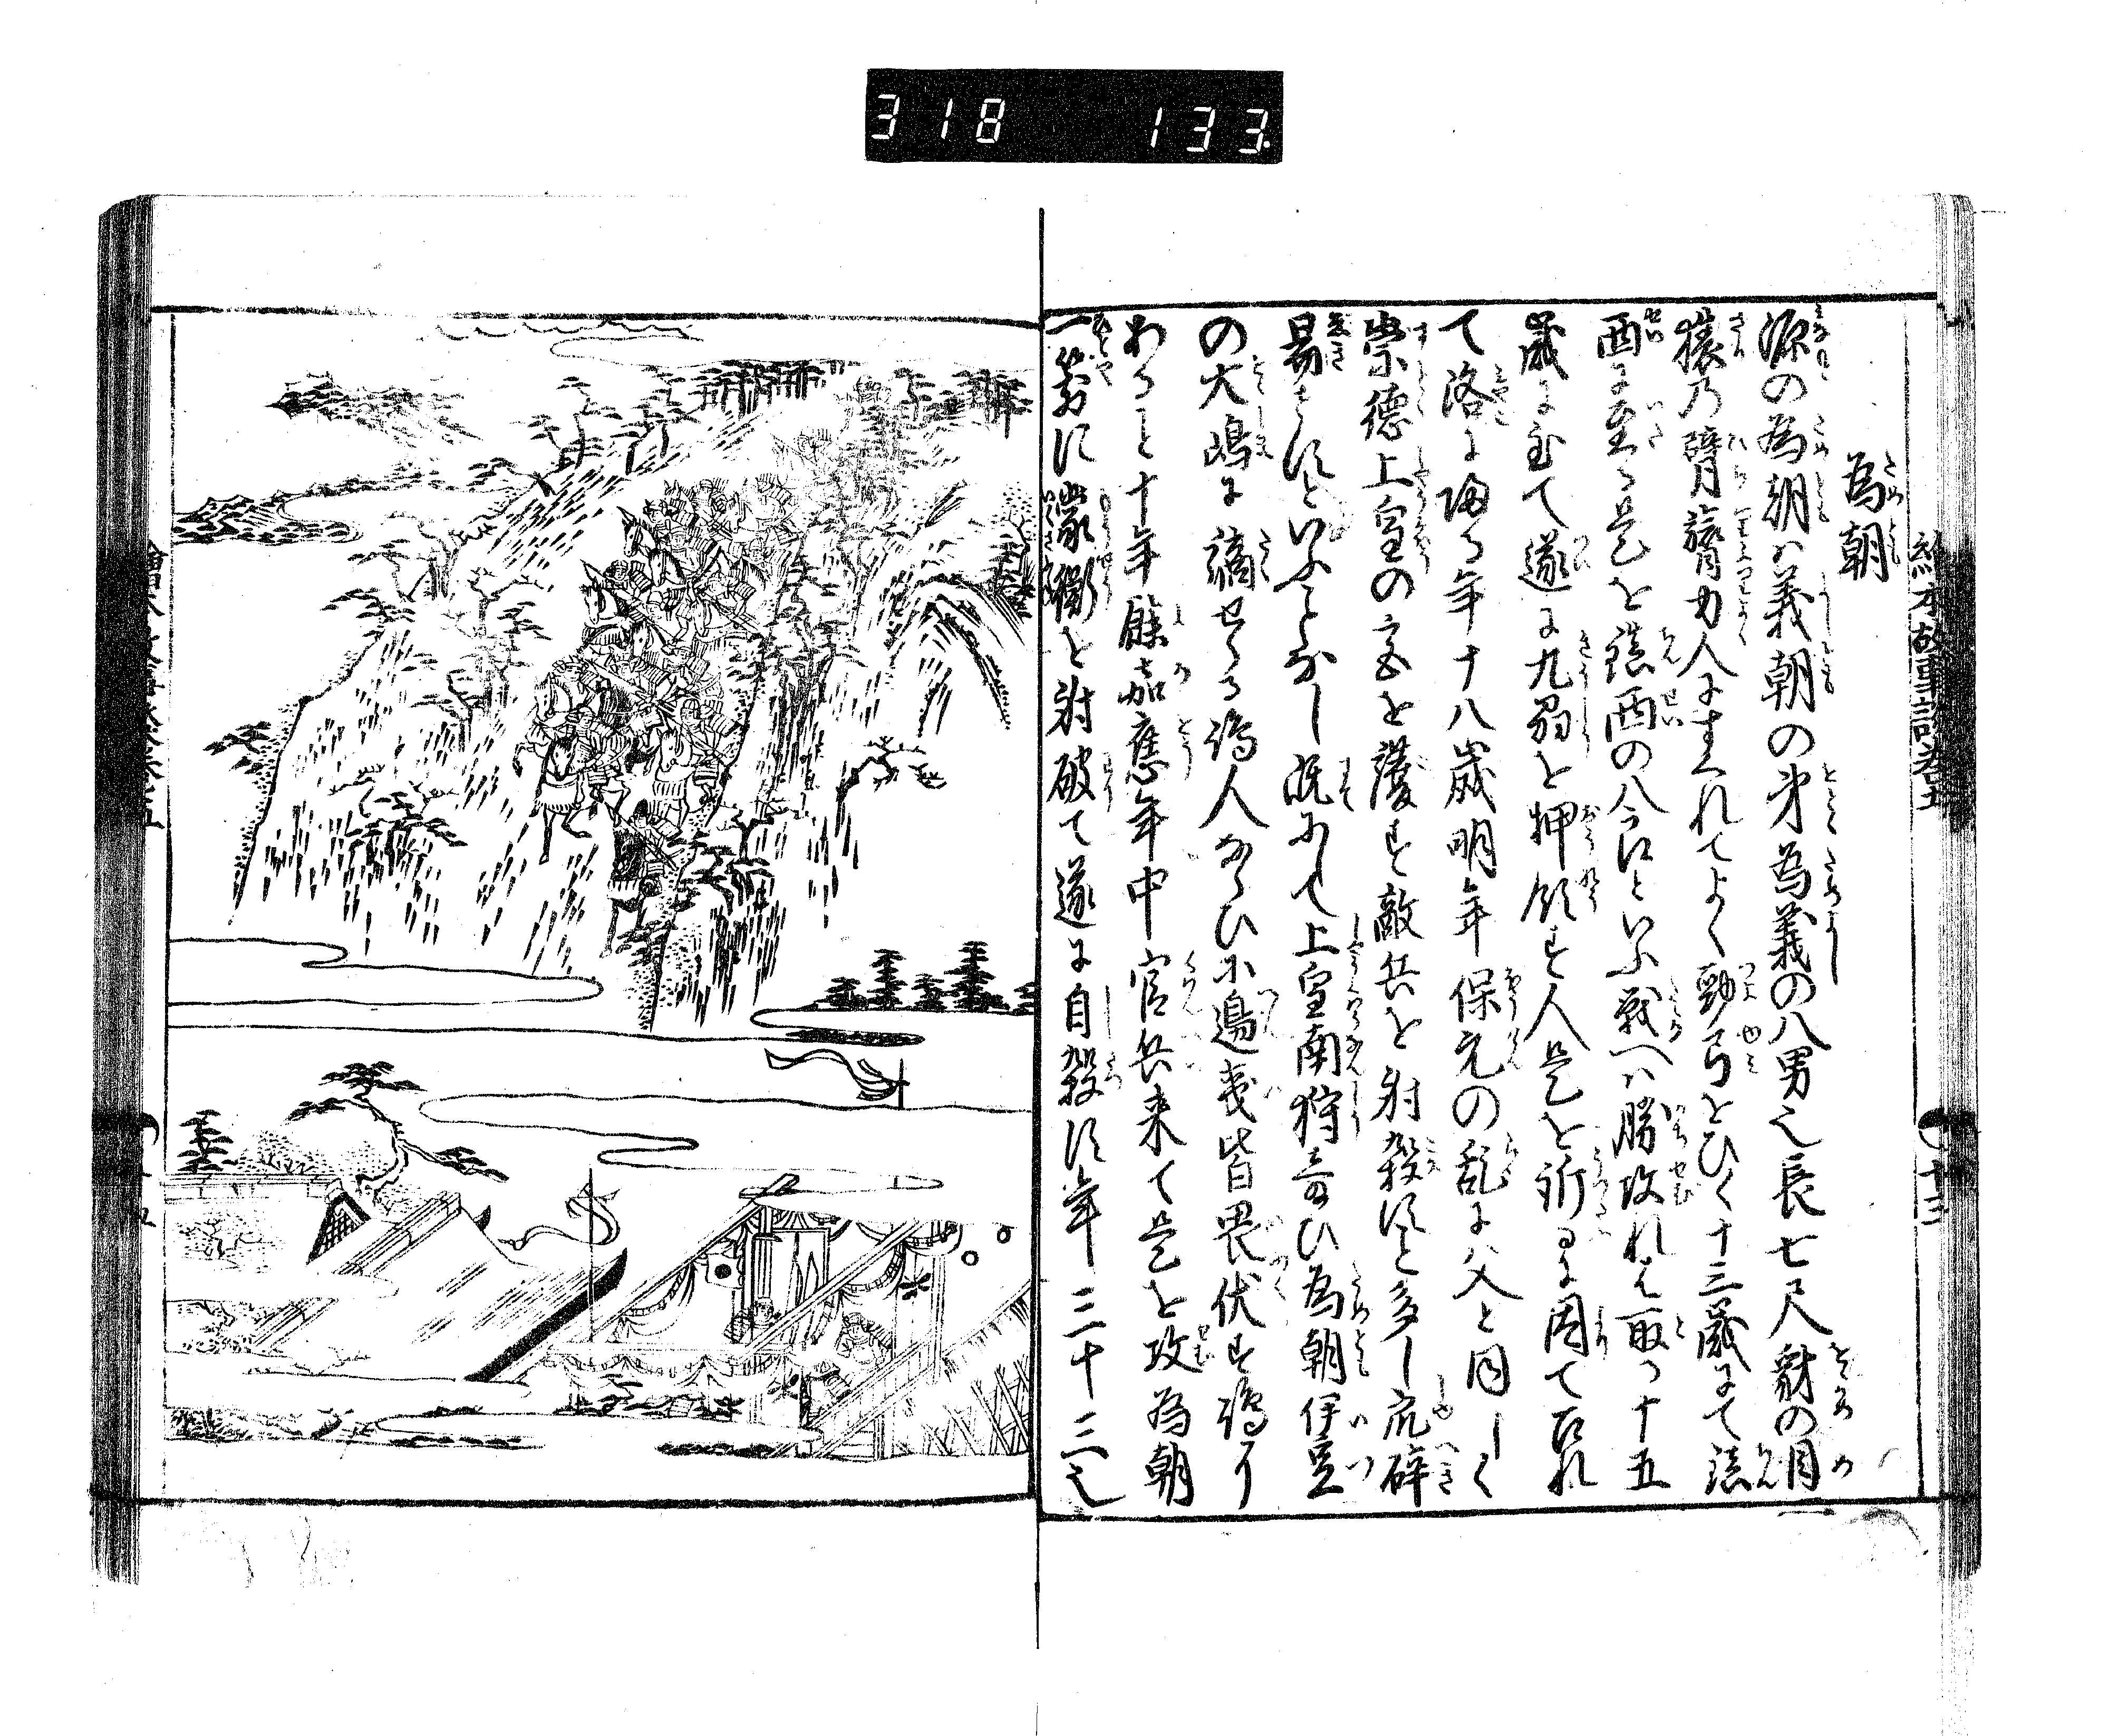 318 133
絵本故事談巻五
十三
為朝
源の為朝ハ義朝の弟為義の八男也長七尺豺の目
猿乃臂膂力人にすくれてよく勁弓をひく十三歳にて鎮
西に至る是を鎮西の八郎といふ戦へハ勝攻れは取つ十五
歳に至て遂に九州を押領す人是を訴るに因て召れ
て洛に帰る年十八歳明年保元の乱に父と同しく
崇徳上皇の宮を護す敵兵を射殺すこと多し
易さすといふことなし既にして上皇南狩し給ひ為朝伊豆
の大嶋に謫せらる嶋人ならひに辺夷皆畏伏す嶋に
あること十年餘嘉應年中官兵来て是を攻為朝
一箭に艨衝を射破て遂に自殺す年三十三也